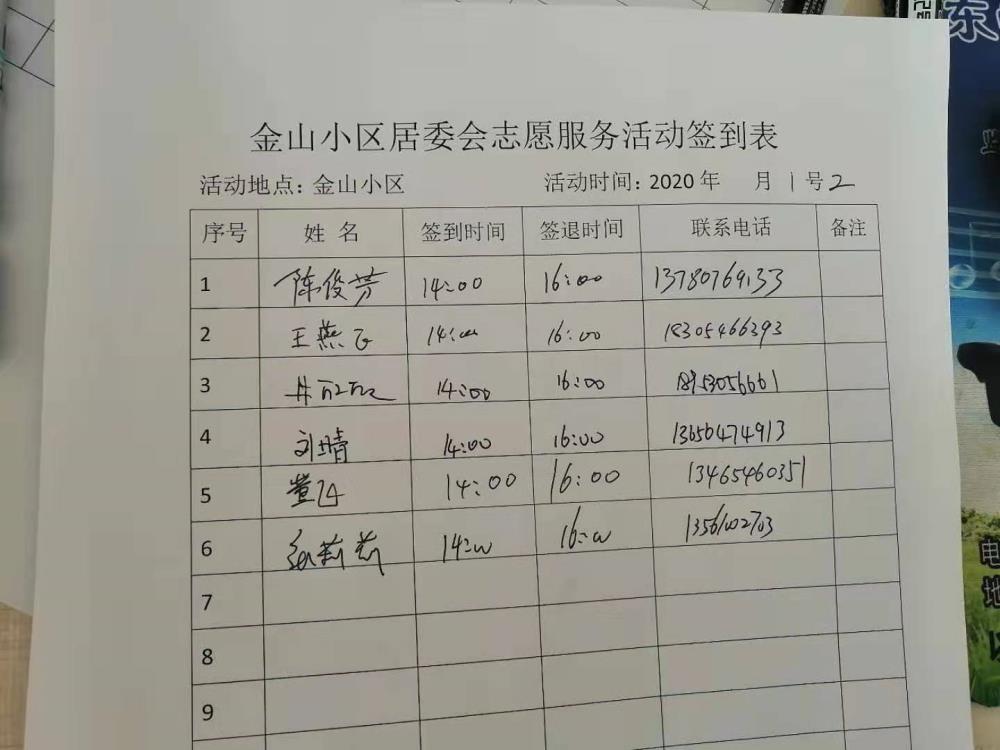 东
金山小区居委会志愿服务活动签到表
活动地点：金山小区 活动时间：2020 年 月 1 号 2
序号 姓 名 签到时间 签退时间 联系电话 备注
1 陈俊芳 14:00 16:00 13780769133
2 王燕飞 14:00 16:00 18305466393
3 14:00 16:00 18953056661
4 刘晴 14:00 16:00 13656474913
5 14:00 16:00 13465460351
6 莉莉 14:00 16:00 13561002703
7
8
9
电
地